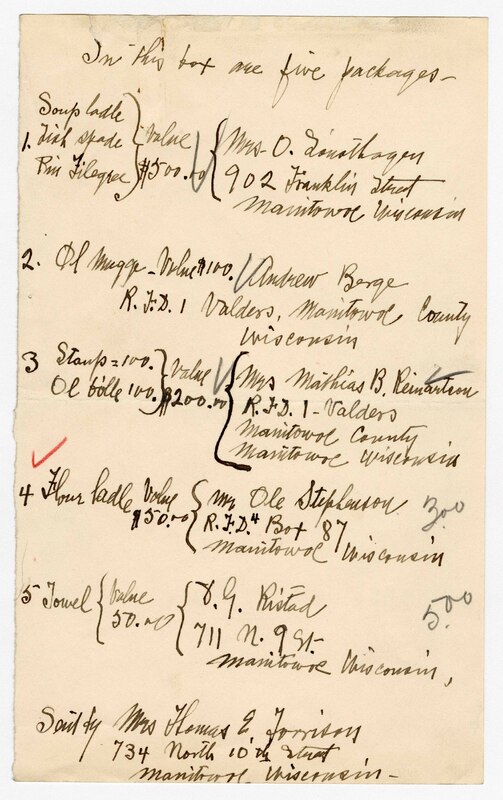 In this box are five packages-
Soup ladle
1. Fish spade } Value { Mrs. O. Lonsthagen
Pin Filegree $500.00 902 Franklin Street
Manitowoc Wisconsin
2. Ol Mugge - Value $100. Andrew Berge
R.F.D. 1 Valders, Manitowoc County
Wisconsin
3 Staup = 100. } Value { Mrs Mathias B. Reinartson
Ol bolle 100. $200.00 R.F.D. 1 - Valders
Manitowoc County
Manitowoc Wisconsin
4 Flour ladle Value { Mr Ole Stephenson 3.00
$50.00 R.F.D. 4 Box 87
Manitowoc Wisconsin
5 Towel { Value { D.G. Ristad 5.00
50.00 711 N. 9 St.
Manitowoc Wisconsin,
Sent by Mrs Thomas E. Torrison
734 North 10th Street
Manitowoc Wisconsin-